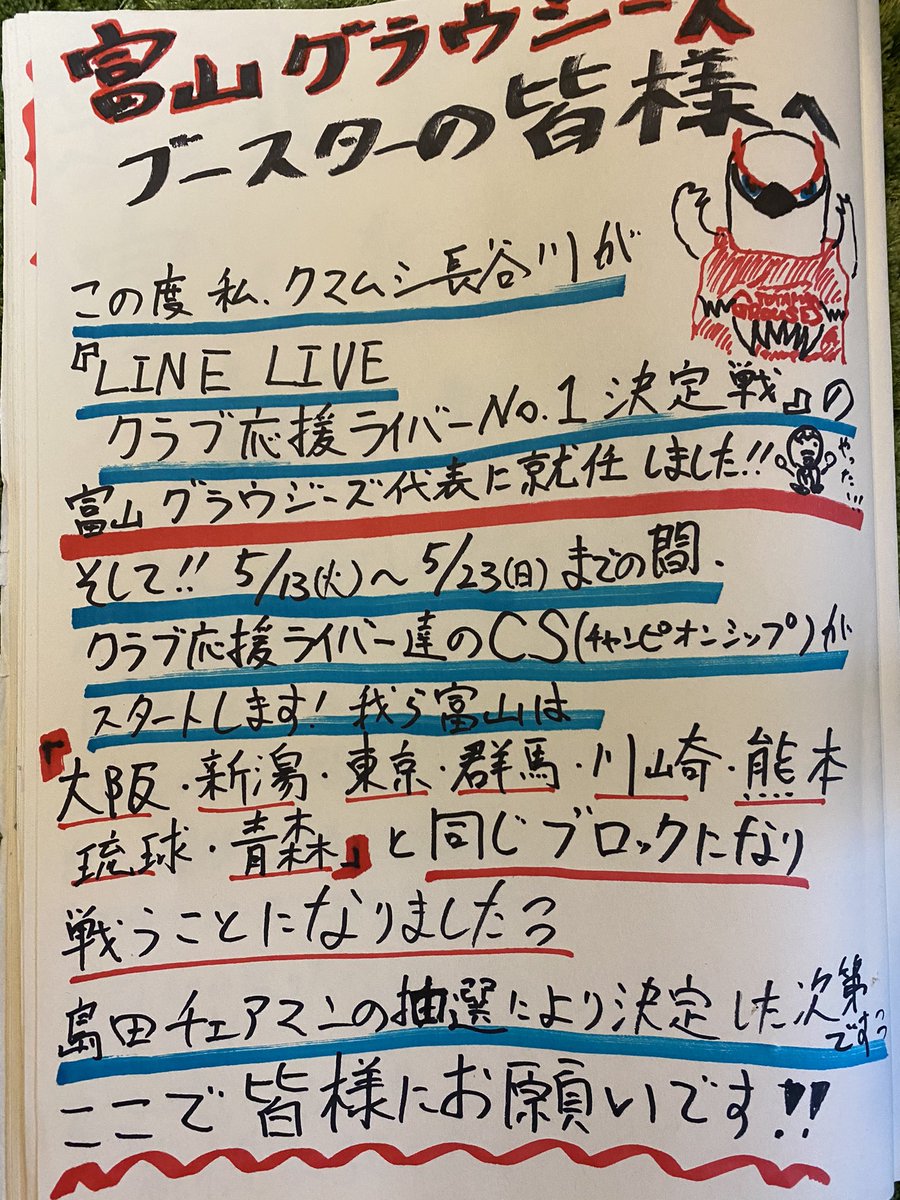 富山グラウジーズ
ブースターの皆様へ
この度 私、クマムシ長谷川が
『LINE LIVE
クラブ応援ライバーNo.1 決定戦』の
やったー!!
富山グラウジーズ代表に就任しました!!
そして!! 5/13(火)〜5/23(日)までの間、
クラブ応援ライバー達のCS(チャンピオンシップ)が
スタートします! 我ら富山は
『大阪・新潟・東京・群馬・川崎・熊本
琉球・青森』と同じブロックになり
戦うことになりましたっっ
島田チェアマンの抽選により決定した次第
ですっっ
ここで皆様にお願いです!!
TOYAMA
GROUSES